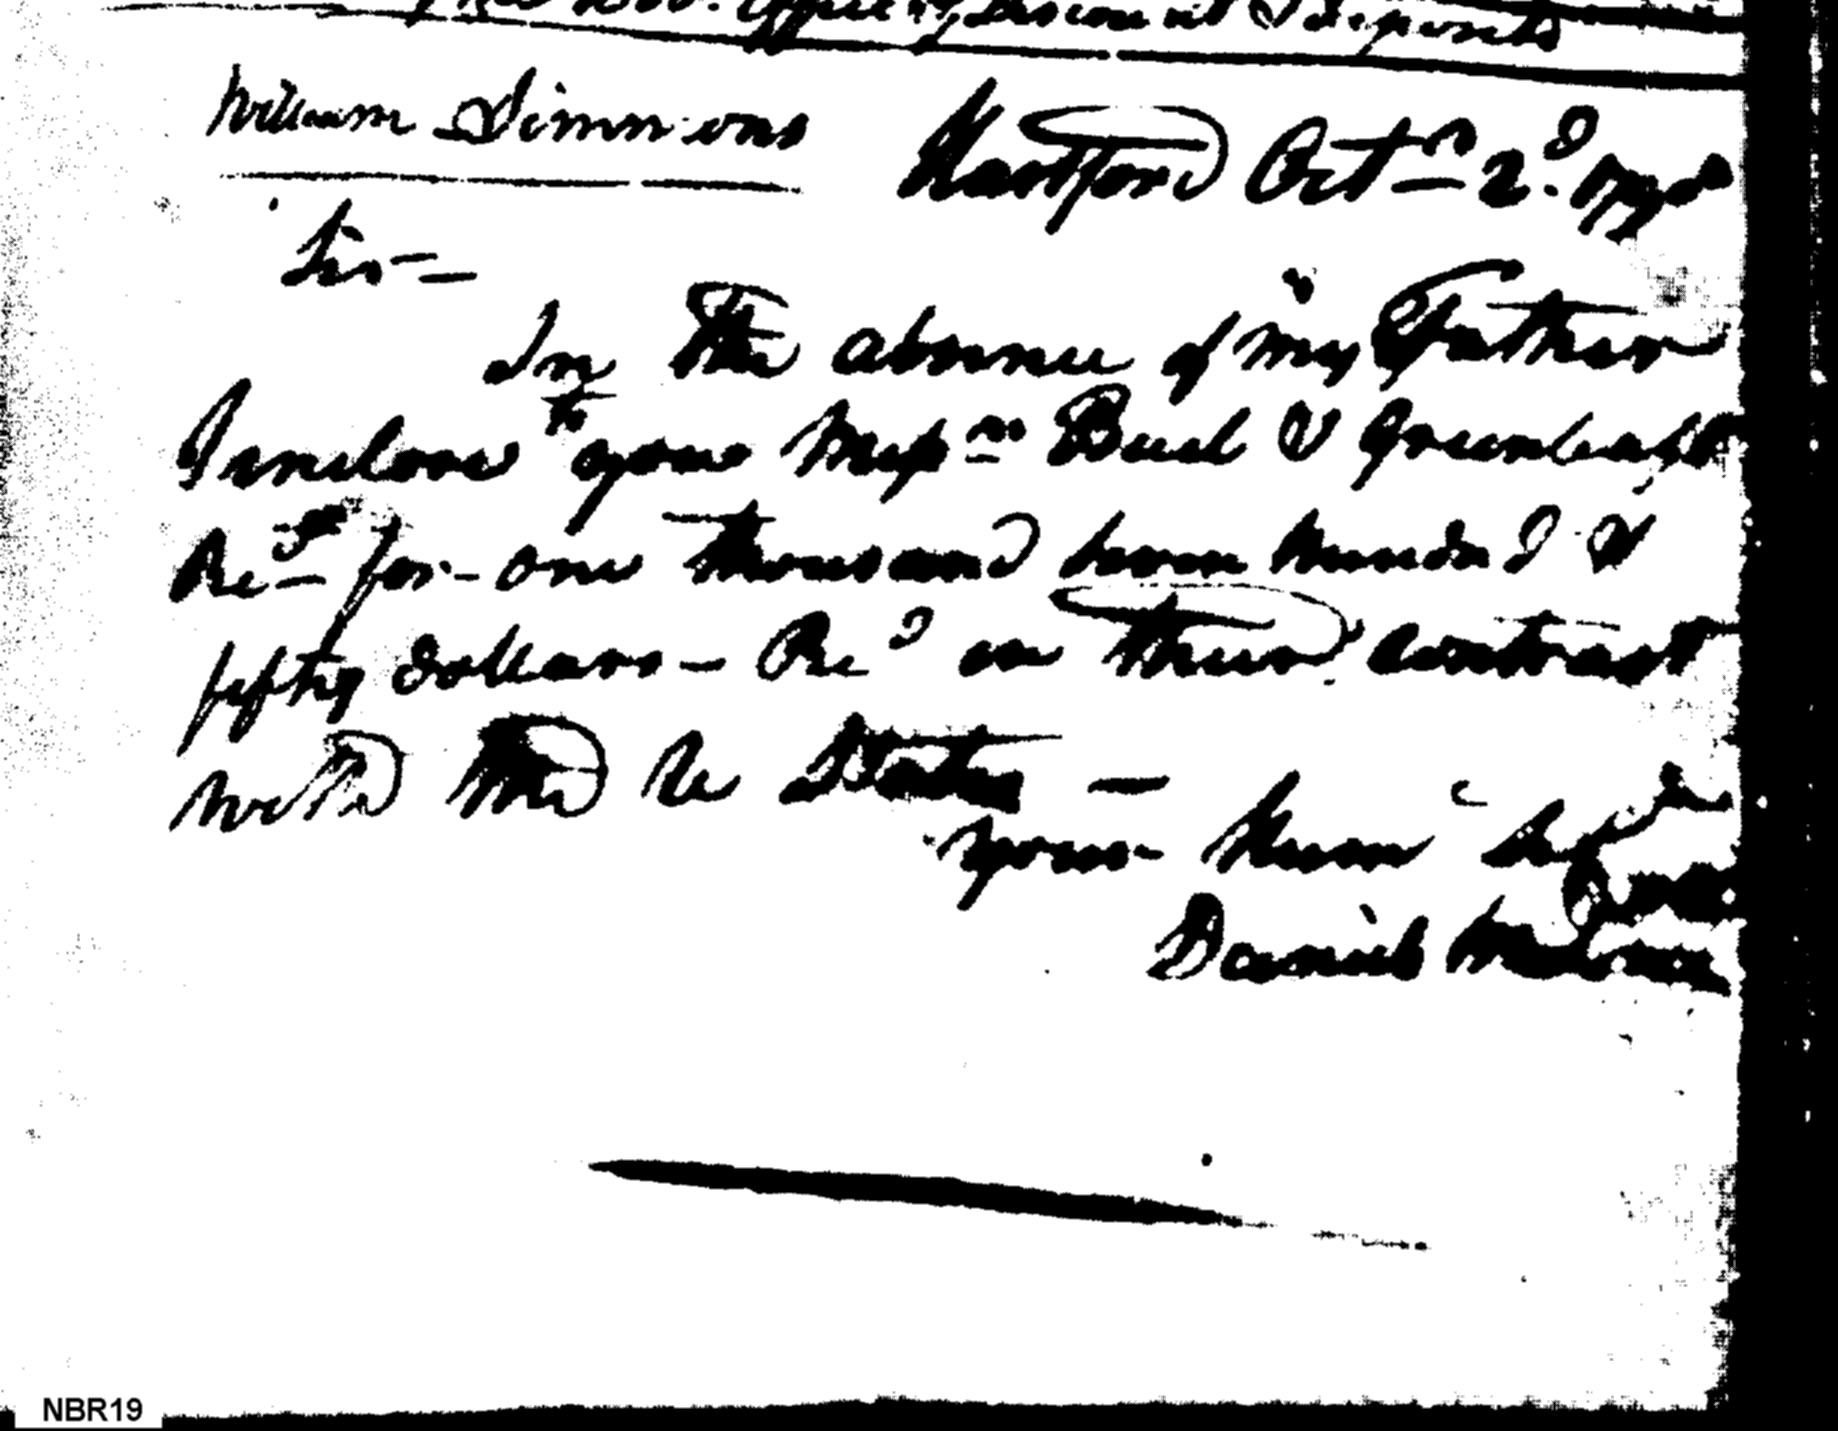 Office of Discount & Deposits
William Simmons
Hartford Oct 2d. 1798
Sir —
In the absence of my Father
I inclose to you Messrs Buel & Greenleafs
Rect for one thousand seven hundred &
fifty dollars — Recd on their contract
with the U States —
your Hum
Daniel
NBR19